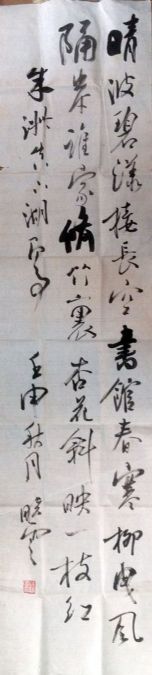 晴波碧漾接長空書館春寒柳曳風
隔岸誰家脩竹裏杏花斜映一枝紅
朱淑真下湖即事
壬申秋月